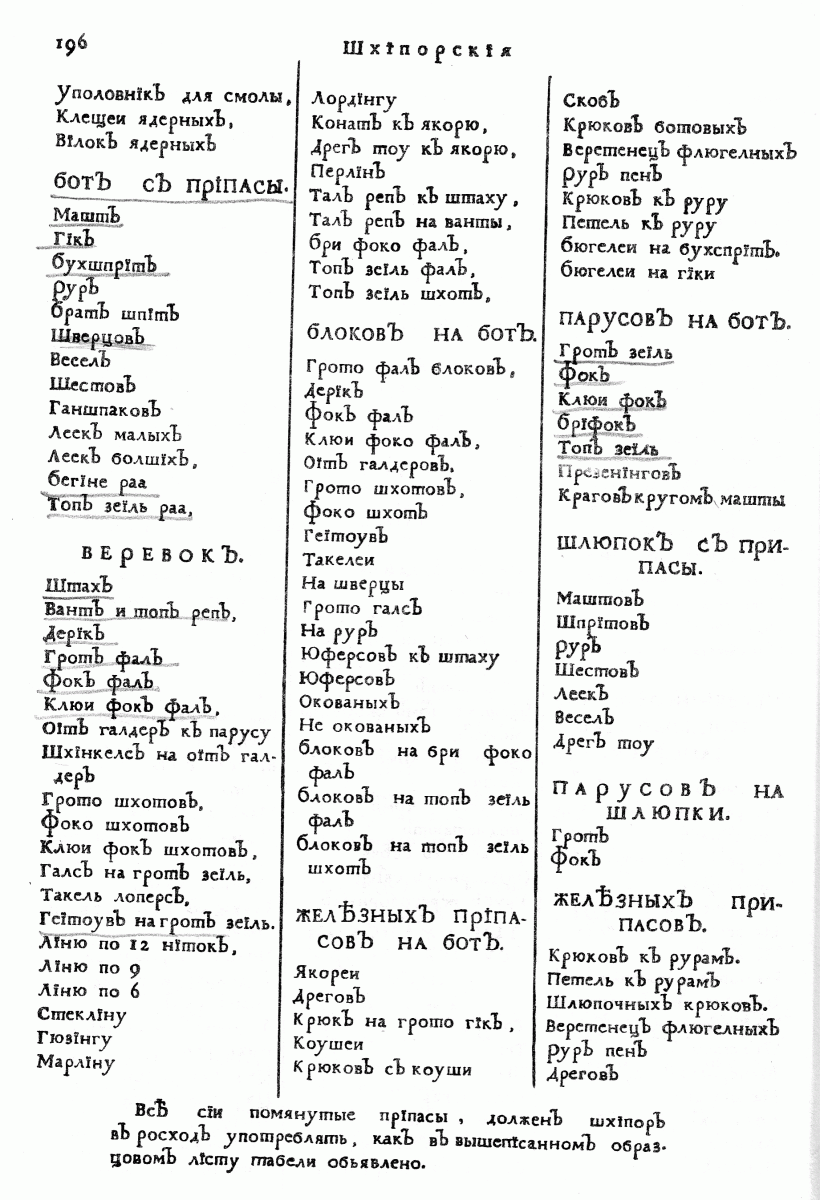 196
Шхіпорскія
УполовнікЪ для смолы,
Клещеи ядерныхЪ,
ВілокЪ ядерныхЪ
БОТЪ СЪ ПРІПАСЫ.
МаштЪ
ГікЪ
бухшпрітЪ
РурЪ
братЪ шпітЪ
ШверцовЪ
ВеселЪ
ШестовЪ
ГаншпаковЪ
ЛеекЪ малыхЪ
ЛеекЪ болшіхЪ,
бегіне раа
ТопЪ зеіль раа,
ВЕРЕВОКЪ.
ШтахЪ
ВантЪ и топЪ репЪ,
ДерікЪ
ГротЪ фалЪ
ФокЪ фалЪ
Клюи фокЪ фалЪ,
ОітЪ галдерЪ кЪ парусу
Шхінкелсъ на оітЪ гал-
дерЪ
Грото шхотовЪ,
Фоко шхотовЪ
Клюи фокЪ шхотовЪ,
ГалсЪ на гротЪ зеіль,
Такель лоперсЪ,
ГеітоувЪ на гротЪ зеіль.
Ліню по 12 нітокЪ,
Ліню по 9
Ліню по 6
Стекліну
Гюзінгу
Марліну
Лордінгу
КонатЪ кЪ якорю,
ДрегЪ тоу кЪ якорю,
ПерлінЪ
ТалЪ репЪ кЪ штаху,
ТалЪ репЪ на ванты,
бри фоко фалЪ,
ТопЪ зеіль фалЪ,
ТопЪ зеіль шхотЪ,
БЛОКОВЪ НА БОТЪ.
Грото фалЪ блоковЪ,
ДерікЪ
ФокЪ фалЪ
Клюи фоко фалЪ,
ОітЪ галдеровЪ,
Грото шхотовЪ,
Фоко шхотЪ
ГеітоувЪ
Такелеи
На шверцы
Грото галсЪ
На рурЪ
ЮферсовЪ кЪ штаху
ЮферсовЪ
ОкованыхЪ
Не окованыхЪ
блоковЪ на бри фоко
фалЪ
блоковЪ на топЪ зеіль
фалЪ
блоковЪ на топЪ зеіль
шхотЪ
ЖЕЛѢЗНЫХЪ ПРІПА-
СОВЪ НА БОТЪ.
Якореи
ДреговЪ
КрюкЪ на грото гікЪ,
Коушеи
КрюковЪ сЪ коуши
СкобЪ
КрюковЪ ботовыхЪ
ВеретенецЪ флюгелныхЪ
РурЪ пенЪ
КрюковЪ кЪ руру
Петель кЪ руру
бюгелеи на бухспрітЪ.
бюгелеи на гіки
ПАРУСОВЪ НА БОТЪ.
ГротЪ зеіль
ФокЪ
Клюи фокЪ
бріфокЪ
ТопЪ зеіль
ПрезенінговЪ
КраговЪ кругомЪ машты
ШЛЮПОКЪ СЪ ПРИ-
ПАСЫ.
МаштовЪ
ШпрітовЪ
РурЪ
ШестовЪ
ЛеекЪ
ВеселЪ
ДрегЪ тоу
ПАРУСОВЪ НА
ШЛЮПКИ.
ГротЪ
ФокЪ
ЖЕЛѢЗНЫХЪ ПРИ-
ПАСОВЪ.
КрюковЪ кЪ рурамЪ.
Петель кЪ рурамЪ
ШлюпочныхЪ крюковЪ.
ВеретенецЪ флюгелныхЪ
РурЪ пенЪ
ДреговЪ
Всѣ сіи помянутые пріпасы, долженЪ шхіпорЪ
вЪ росходЪ употреблять, какЪ вЪ вышепісанномЪ образ-
цовомЪ лісту табели обьявлено.